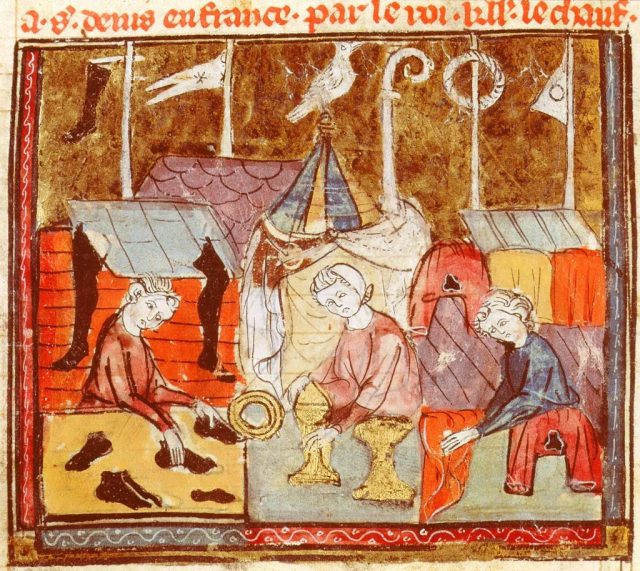 a · s · denis en france · par le roi · kll · le chauf.